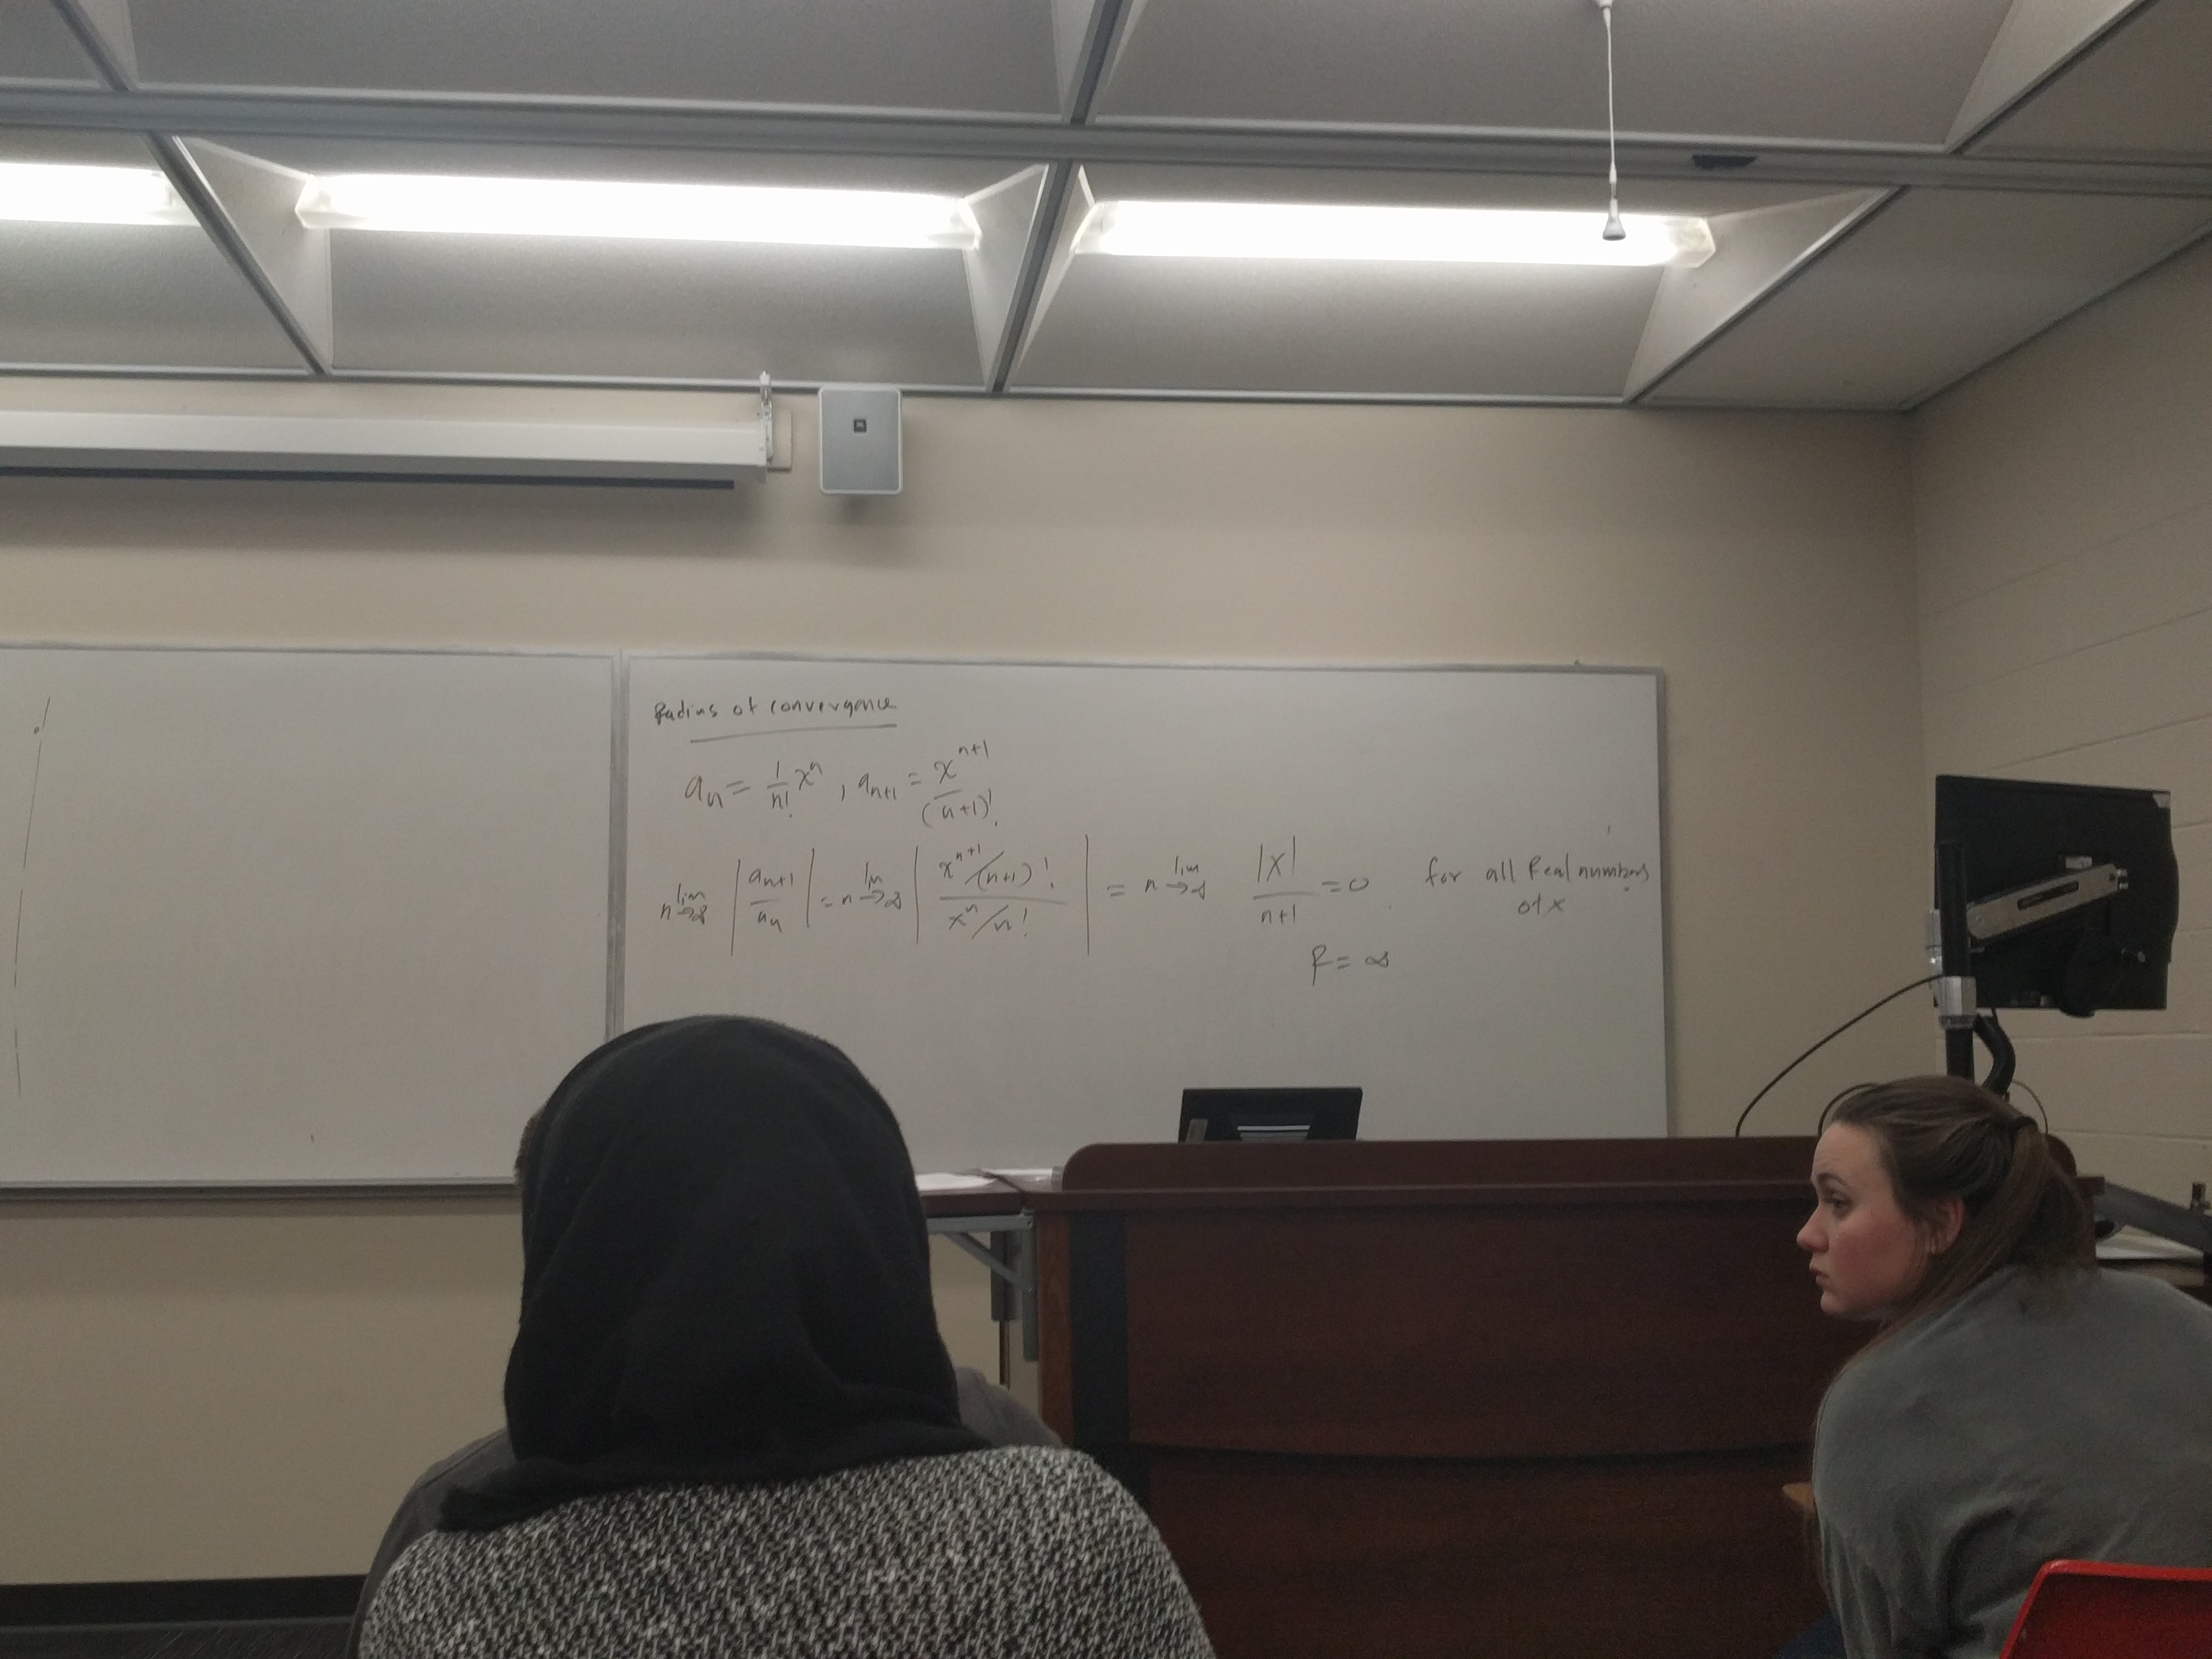 Radius of convergence
aₙ = 1/n! xⁿ , aₙ₊₁ = xⁿ⁺¹/(n+1)!
lim n→∞ |aₙ₊₁/aₙ| = lim n→∞ |(xⁿ⁺¹/(n+1)!)/(xⁿ/n!)| = lim n→∞ |x|/(n+1) = 0 for all Real numbers
of x
R = ∞